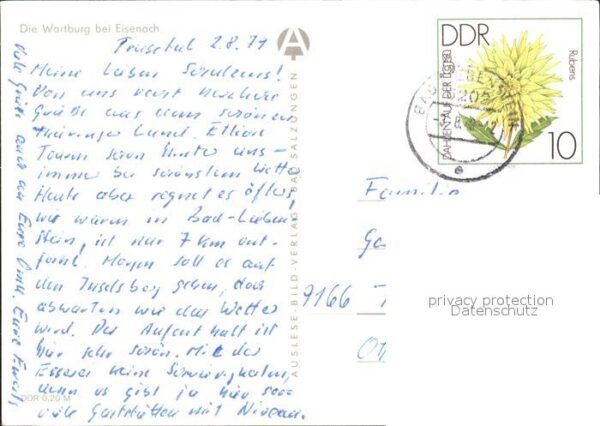 Die Wartburg bei Eisenach
Trusetal 2.8.79
Meine lieben Schulzens!
Von uns recht herzliche
Grüße aus dem schönen
Thüringer Land. Etliche
Touren schon hinter uns –
immer bei schönstem Wetter
Heute aber regnet es öfter,
wir waren in Bad-Lieben-
stein, ist nur 7 km ent-
fernt. Morgen soll es auf
den Inselsberg gehen, doch
abwarten wie das Wetter
wird. Der Aufenthalt ist
hier sehr schön. Mit dem
Essen keine Schwierigkeiten,
denn es gibt ja hier sooo
viele Gaststätten mit Niveau.
Viele Grüße auch an Eure Omi. Eure
DDR 0,20 M
AUSLESE-BILD-VERLAG BAD SALZUNGEN
A
DDR
DAHLIEN AUS DER
Rubens
10
BAD LIEBENSTEIN
Familie
7166
privacy protection
Datenschutz